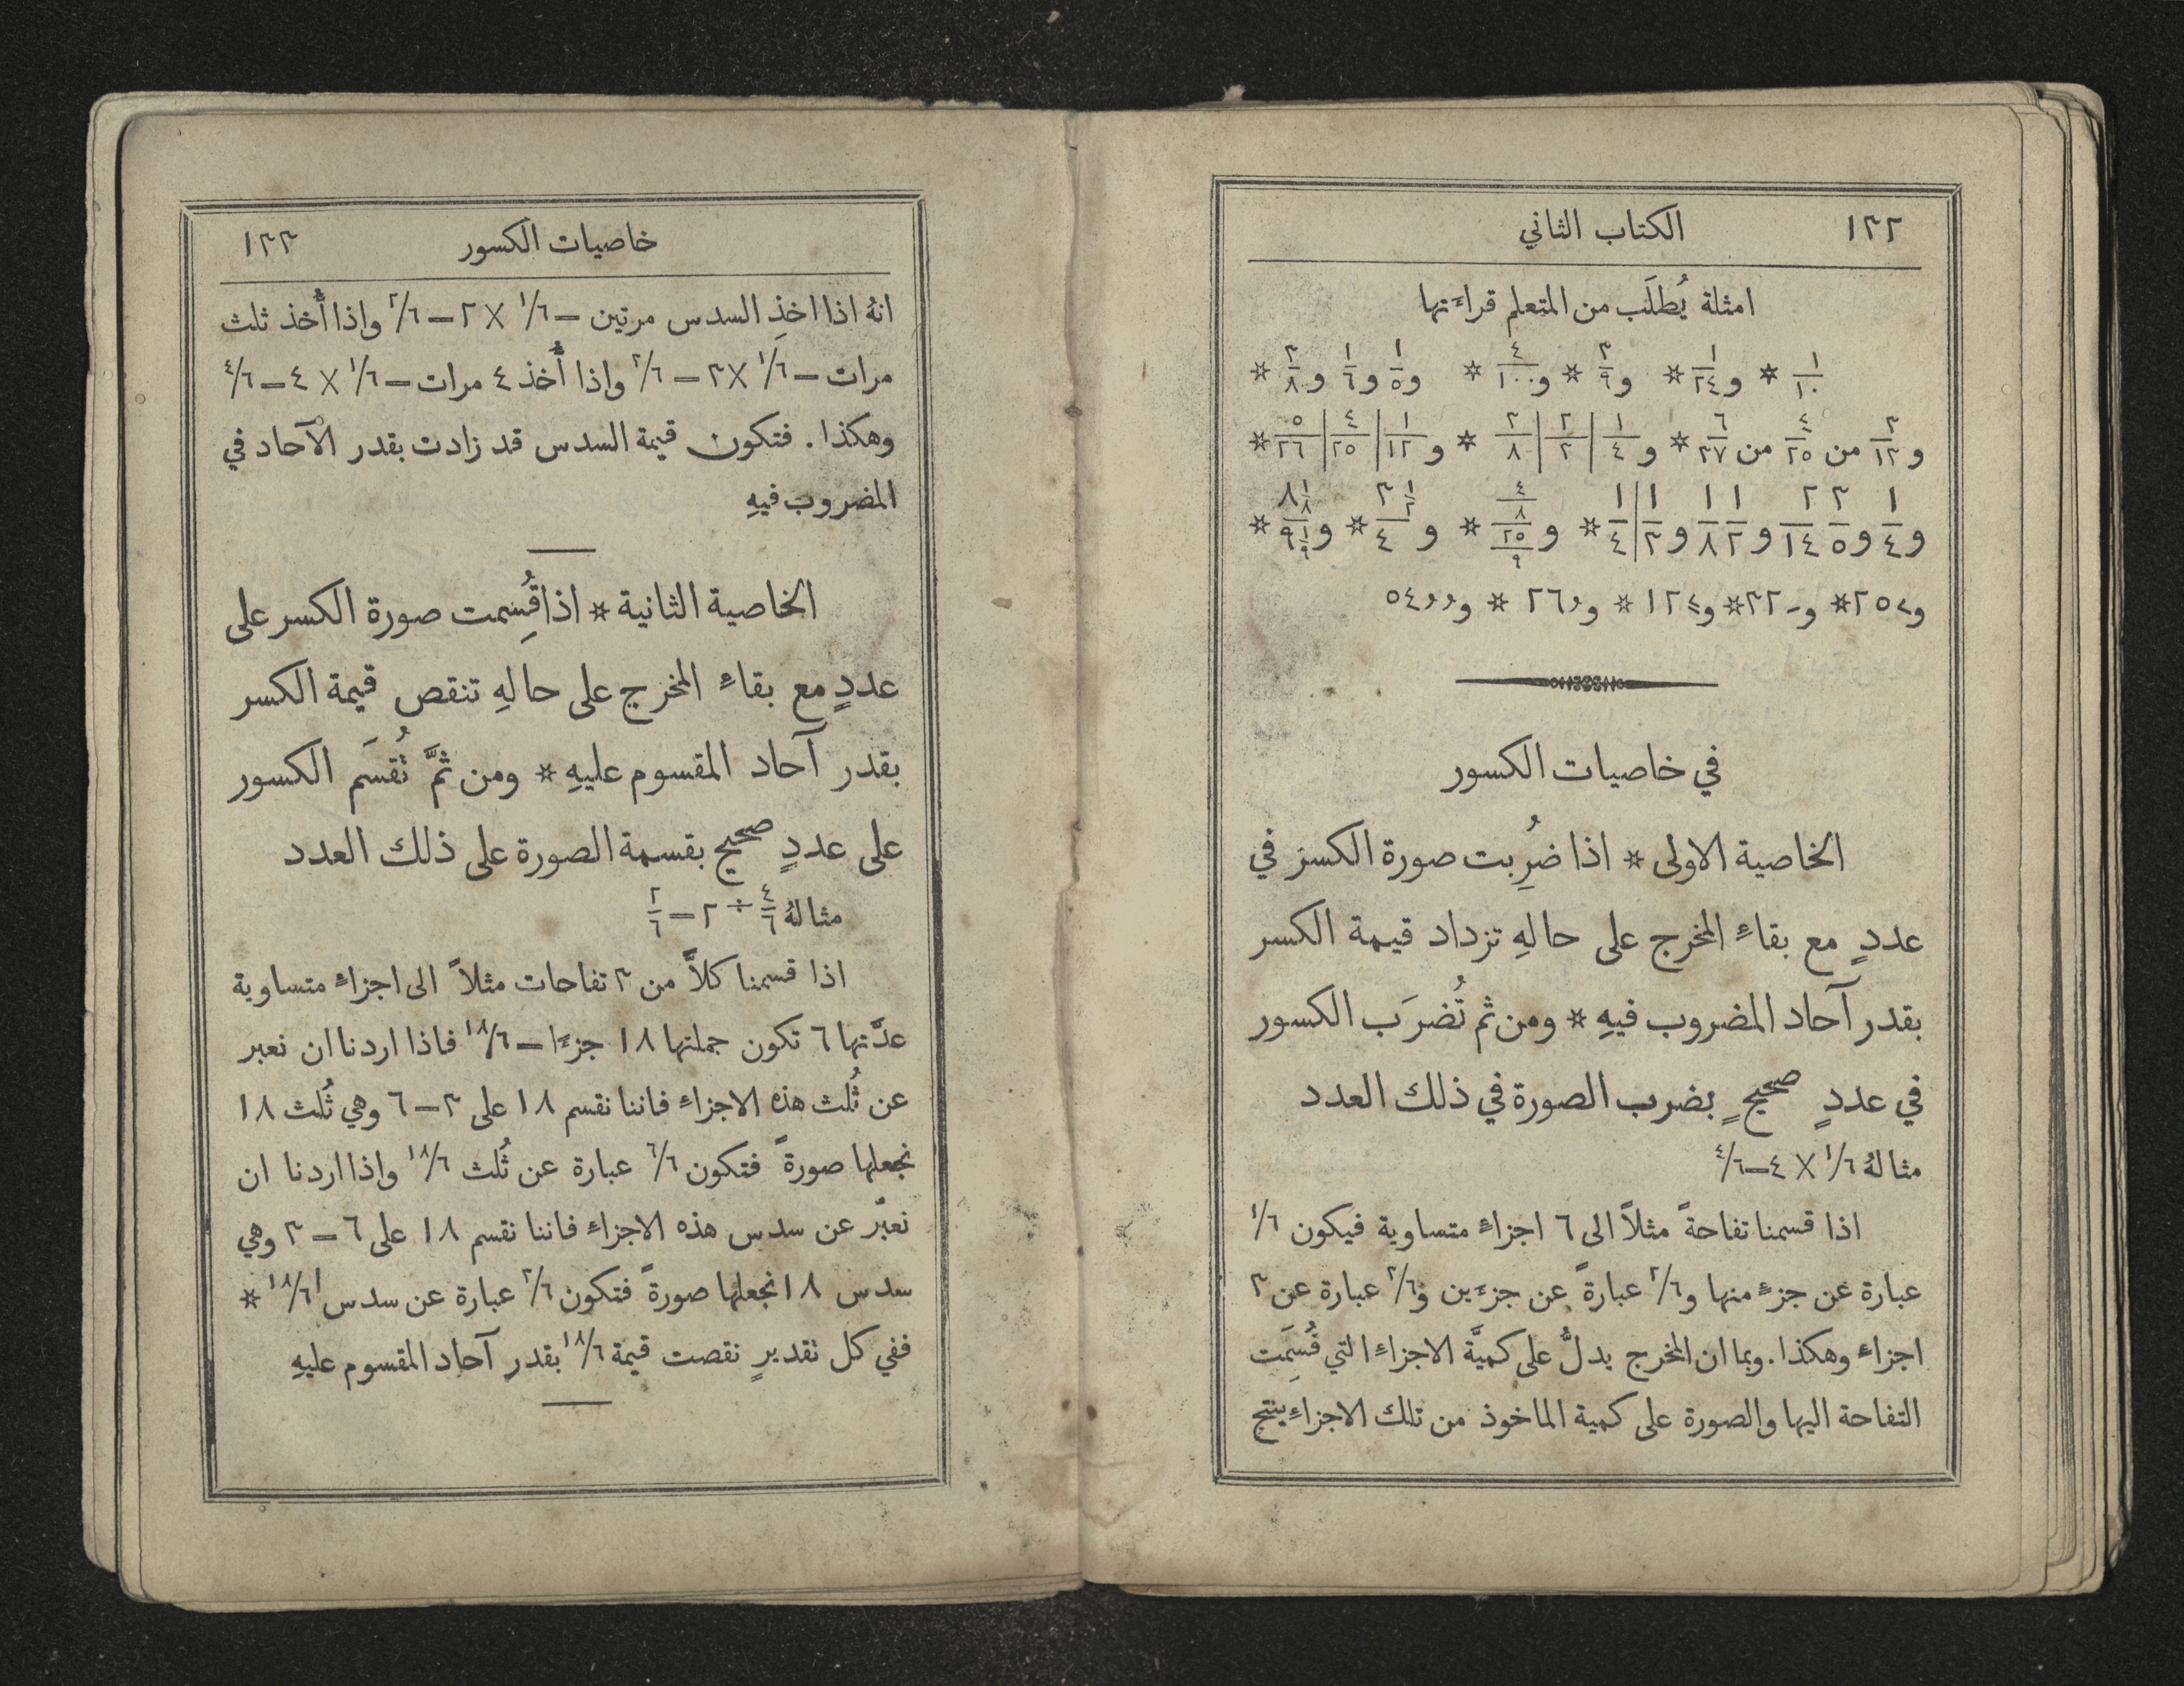 ١٣٢ الكتاب الثاني
امثلة يُطلَب من المتعلم قراءتها
١/١٠ * و١/٢٤ * و٣/٩ * و٤/١٠٠ * و١/٥ و١/٦ و٣/٨ *
و٣/١٢ من ٤/٢٥ من ٦/٢٧ * و ١/٤ | ٢/٣ | ٢/٨ * و ١/١٢ | ٤/٢٥ | ٥/٢٦ *
في خاصيات الكسور
الخاصية الاولى * اذا ضُرِبت صورة الكسر في
عددٍ مع بقاءِ المخرج على حالهِ تزداد قيمة الكسر
بقدر آحاد المضروب فيهِ * ومن ثم تُضرَب الكسور
في عددٍ صحيحٍ بضرب الصورة في ذلك العدد
مثالهُ ١/٦ × ٤ — ٤/٦
اذا قسمنا تفاحةً مثلاً الى ٦ اجزاءٍ متساوية فيكون ١/٦
عبارة عن جزءٍ منها و٢/٦ عبارةً عن جزءَين و٣/٦ عبارة عن ٣
اجزاء وهكذا. وبما ان المخرج يدلُّ على كميَّة الاجزاءِ التي قُسِمَت
التفاحة اليها والصورة على كمية الماخوذ من تلك الاجزاءِ ينتج
خاصيات الكسور ١٣٣
انهُ اذا اخذِ السدس مرتين — ١/٦ × ٢ — ٢/٦ واذا أُخذ ثلث
مرات — ١/٦ × ٣ — ٣/٦ واذا أُخذ ٤ مرات — ١/٦ × ٤ — ٤/٦
وهكذا. فتكون قيمة السدس قد زادت بقدر الآحاد في
المضروب فيهِ
الخاصية الثانية * اذا قُسِمت صورة الكسر على
عددٍ مع بقاءِ المخرج على حالهِ تنقص قيمة الكسر
بقدر آحاد المقسوم عليهِ * ومن ثمَّ تُقسَم الكسور
على عددٍ صحيح بقسمة الصورة على ذلك العدد
مثالهُ ٤/٦ ÷ ٢ — ٢/٦
اذا قسمنا كلاًّ من ٣ تفاحات مثلاً الى اجزاءٍ متساوية
عدَّتها ٦ تكون جملتها ١٨ جزءًا — ١٨/٦ فاذا اردنا ان نعبر
عن ثُلث هذه الاجزاءِ فاننا نقسم ١٨ على ٣ — ٦ وهي ثُلث ١٨
نجعلها صورةً فتكون ٦/٦ عبارة عن ثُلث ١٨/٦ واذا اردنا ان
نعبّر عن سدس هذه الاجزاءِ فاننا نقسم ١٨ على ٦ — ٣ وهي
سدس ١٨ نجعلها صورةً فتكون ٣/٦ عبارة عن سدس ١٨/٦ *
ففي كل تقديرٍ نقصت قيمة ١٨/٦ بقدر آحاد المقسوم عليهِ